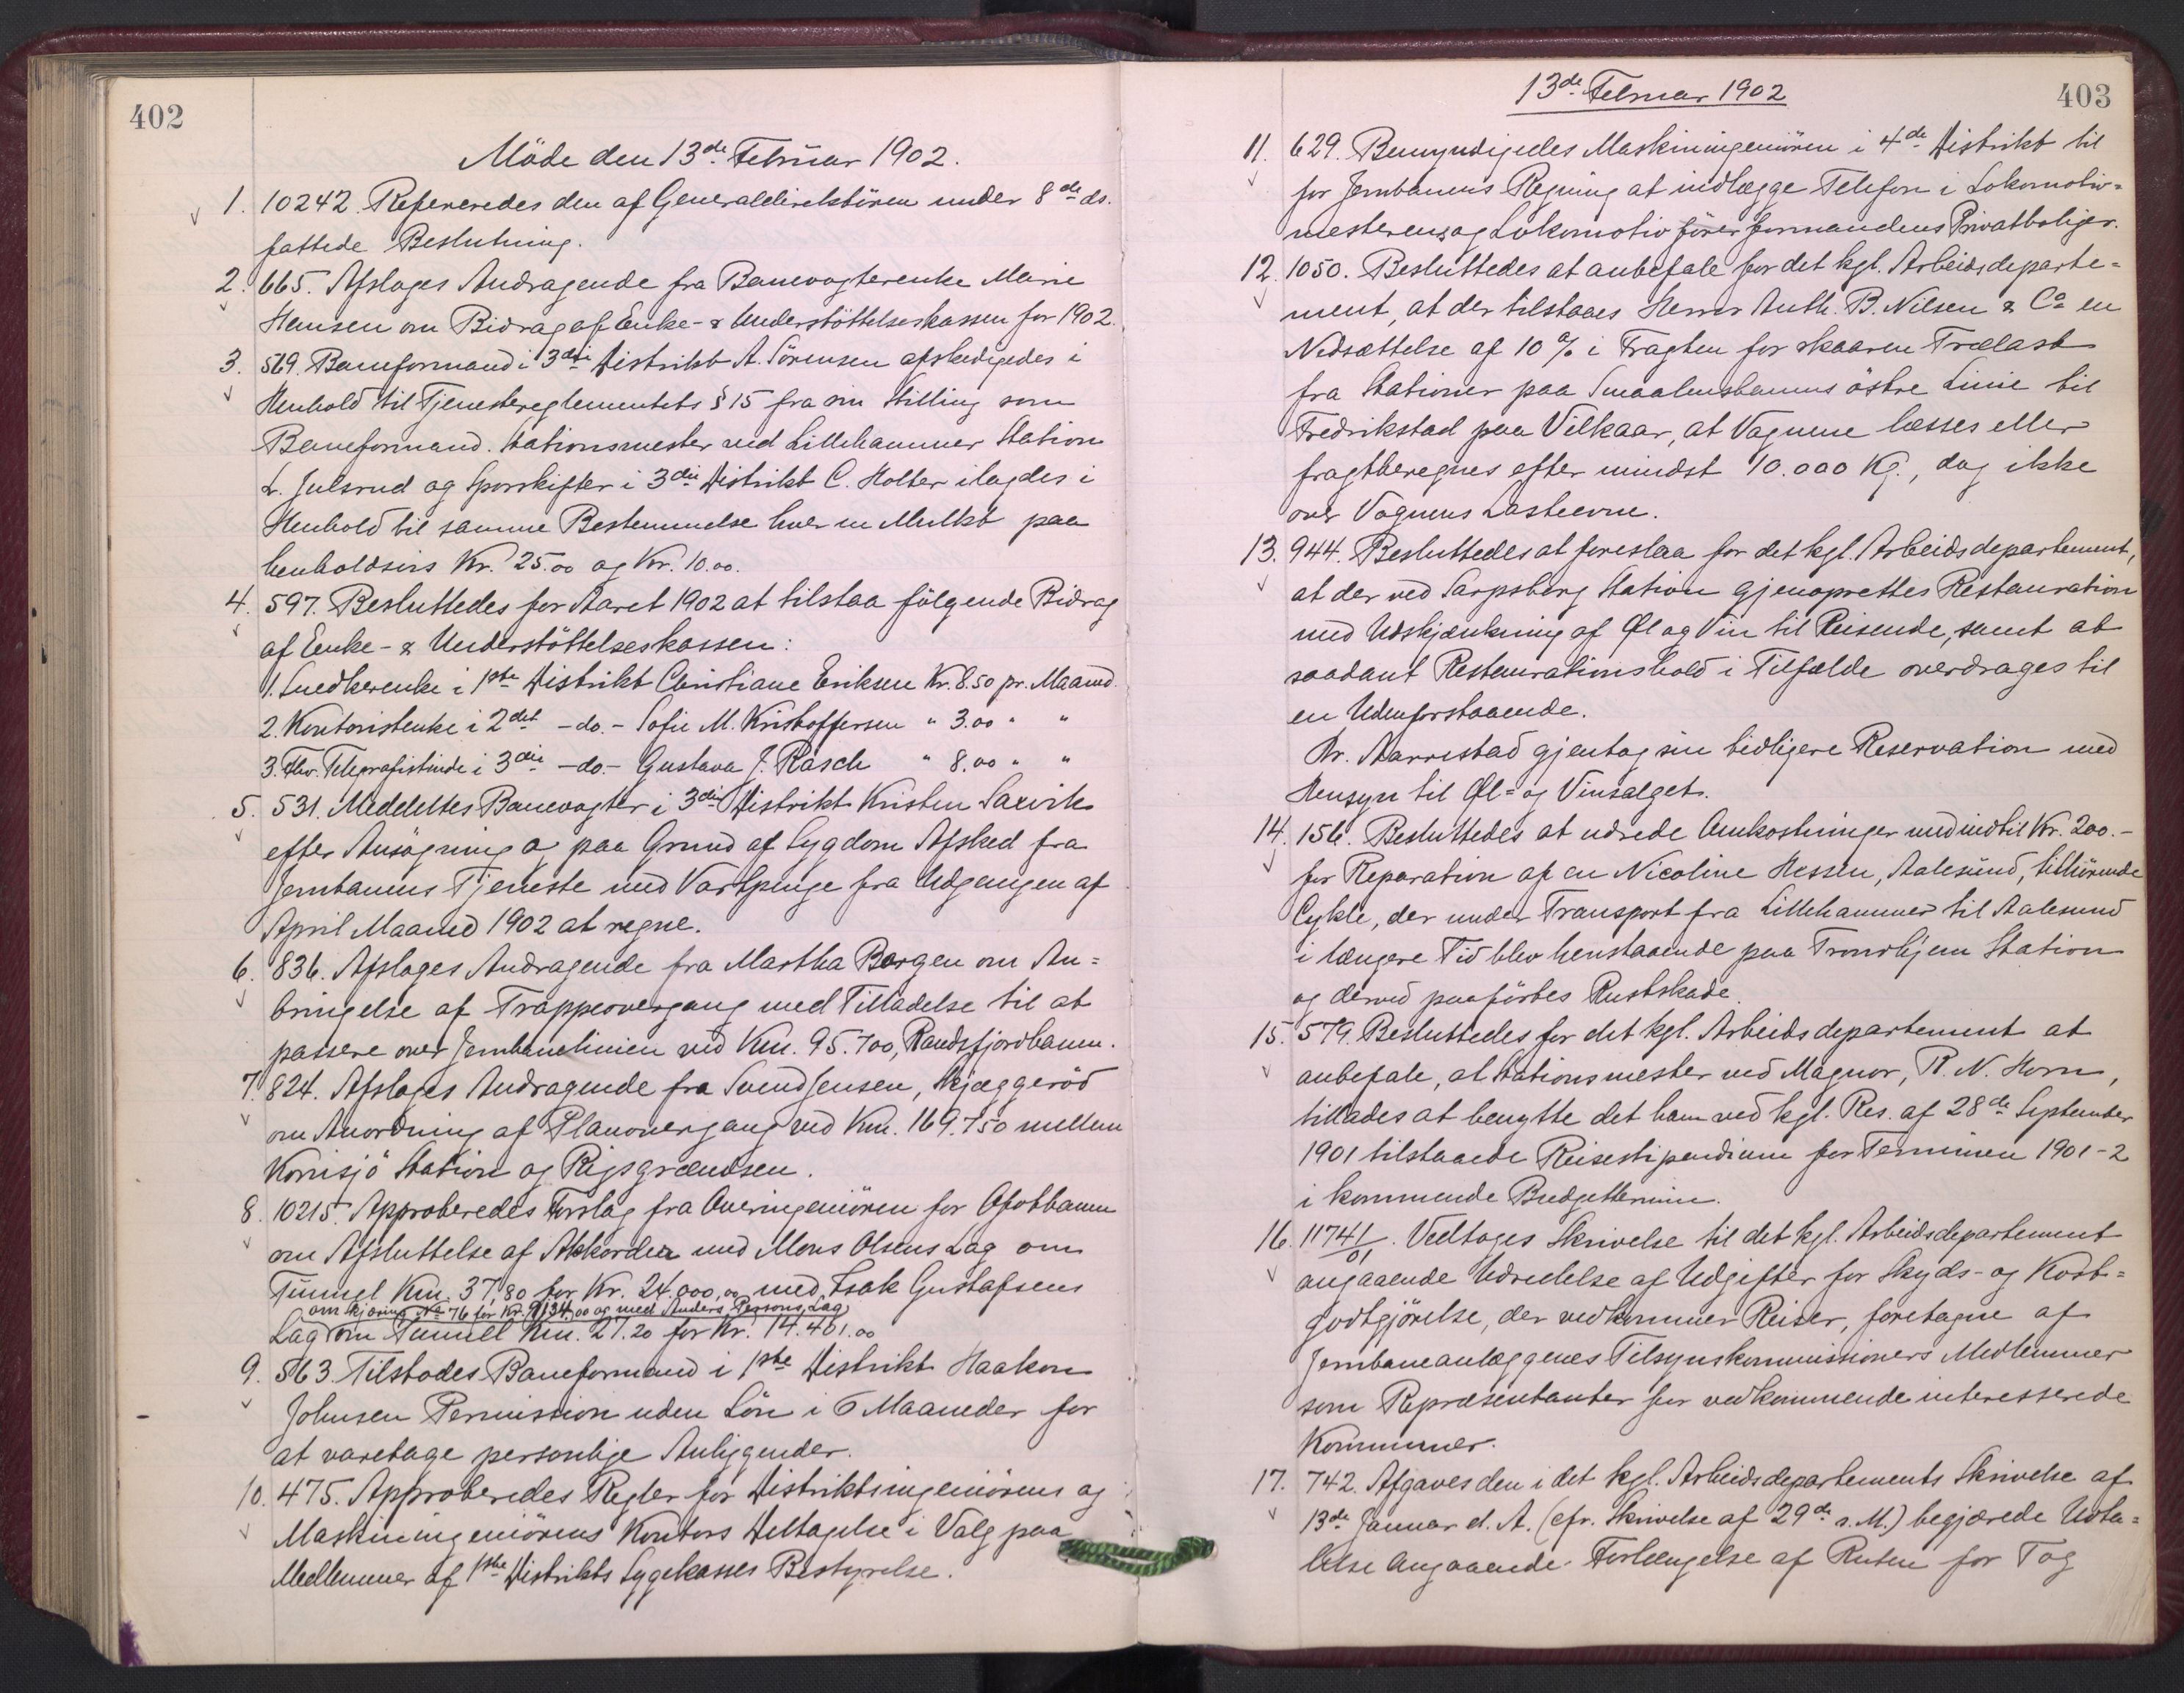 402
Möde den 13de Februar 1902.
1. 10242. Refereredes den af Generaldirektören under 8de ds.
fattede Beslutning.
2. 665. Afsloges Andragende fra Banevogterenke Marie
Hansen om Bidrag af Enke- & Understöttelseskassen for 1902.
3. 569. Baneformand i 3die Distrikt A. Sörensen afskedigedes i
Henhold til Tjenestereglementets § 15 fra sin Stilling som
Baneformand. Stationsmester ved Lillehammer Station
L. Julsrud og Sporskifter i 3die Distrikt C. Holter ilagdes i
Henhold til samme Bestemmelse hver en Mulkt paa
henholdsvis Kr. 25.00 og Kr. 10.00.
4. 597. Besluttedes for Aaret 1902 at tilstaa fölgende Bidrag
af Enke- & Understöttelseskassen:
1. Snedkerenke i 1ste Distrikt Christiane Eriksen Kr. 8.50 pr. Maaned.
2. Kontoristenke i 2det -do.- Sofie M. Kristoffersen " 3.00 " "
3. Fhv. Telegrafistinde i 3die -do- Gustava J. Rasch " 8.00 " "
5. 531. Meddeltes Banevogter i 3die Distrikt Kristen Saxvik
efter Ansögning og paa Grund af Sygdom Afsked fra
Jernbanens Tjeneste med Vartpenge fra Udgangen af
April Maaned 1902 at regne.
6. 836. Afsloges Andragende fra Martha Borgen om An=
bringelse af Trappeovergang med Tilladelse til at
passere over Jernbanelinien ved Km. 95.700, Randsfjordbanen.
7. 824. Afsloges Andragende fra Svend Jensen, Skjæggeröd
om Anordning af Planovergang ved Km. 169.750 mellem
Kornsjö Station og Rigsgrændsen.
8. 10215. Approberedes Forslag fra Overingeniören for Ofotbanen
om Afsluttelse af Akkorder med Mons Olsens Lag om
Tunnel Km. 37,80 for Kr. 24.000,00 med Isak Gustafsens
om skjæring No 76 for Kr. 9134.00 og med Anders Persons Lag
Lag om Tunnell Km. 21.20 for Kr. 14.401.00
9. 563. Tilstodes Baneformand i 1ste Distrikt Haakon
Johnsen Permission uden Lön i 6 Maaneder for
at varetage personlige Anliggender.
10. 475. Approberedes Regler for Distriktsingeniörens og
Maskiningeniörens Kontors Deltagelse i Valg paa
Medlemmer af 1ste Distrikts Sygekasses Bestyrelse.
13de Februar 1902
403
11. 629. Bemyndigedes Maskiningeniören i 4de Distrikt til
for Jernbanens Regning at indlægge Telefon i Lokomotiv=
mesterens og Lokomotivförerformandens Privatboliger.
12. 1050. Besluttedes at anbefale for det kgl. Arbeidsdeparte=
ment, at der tilstaaes Herrer Anth. B. Nilsen & Co en
Nedsættelse af 10 % i Fragten for skaaren Trælast
fra Stationer paa Smaalensbanens östre Linie til
Fredrikstad paa Vilkaar, at Vognene læsses eller
fragtberegnes efter mindst 10.000 Kg., dog ikke
over Vognens Lasteevne.
13. 944. Besluttedes at foreslaa for det kgl. Arbeidsdepartement,
at der ved Sarpsborg Station gjenoprettes Restauration
med Udskjænkning af Øl og Vin til Reisende, samt at
saadant Restaurationshold i Tilfælde overdrages til
en Udenforstaaende.
Hr. Aarrestad gjentog sin tidligere Reservation med
Hensyn til Øl= og Vinsalget.
14. 156. Besluttedes at udrede Omkostninger med indtil Kr. 200.-
for Reparation af en Nicoline Hessen, Aalesund, tilhörende
Cykle, der under Transport fra Lillehammer til Aalesund
i længere Tid blev henstaaende paa Trondhjem Station
og derved paaförtes Rustskade.
15. 579. Besluttedes for det kgl. Arbeidsdepartement at
anbefale, at Stationsmester ved Magnor, R. N. Horn,
tillades at benytte det ham ved kgl. Res. af 28de September
1901 tilstaaede Reisestipendium for Terminen 1901-2
i kommende Budgettermin.
16. 11741/01. Vedtoges Skrivelse til det kgl. Arbeidsdepartement
angaaende Udredelse af Udgifter for Skyds- og Kost=
godtgjörelse, der vedkommer Reiser, foretagne af
Jernbaneanlæggenes Tilsynskommissioners Medlemmer
som Repræsentanter for vedkommende interesserede
Kommuner.
17. 742. Afgaves den i det kgl. Arbeidsdepartements Skrivelse af
13de Januar d. A. (cfr. Skrivelse af 29de s. M.) begjærede Udta=
lelse angaaende Forlængelse af Ruten for Tog